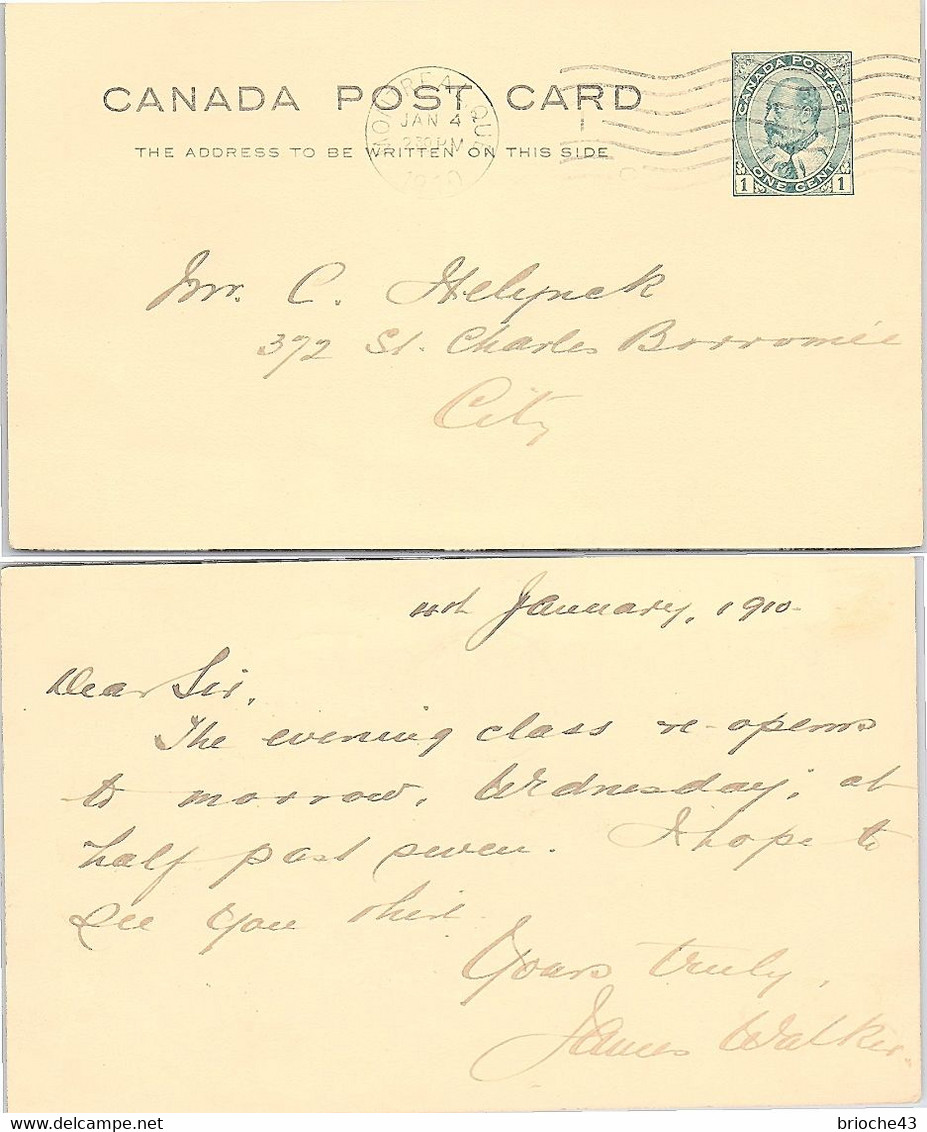 CANADA POST CARD
THE ADDRESS TO BE WRITTEN ON THIS SIDE
MONTREAL, QUE.
JAN 4
2 30 PM
1910
CANADA POSTAGE
1 ONE CENT 1
Mr. C. Helynck
372 St. Charles Borromée
City
4th January, 1910-
Dear Sir,
The evening class re-opens
to morrow, Wednesday, at
half past seven. I hope to
see you
Yours truly,
James Walker.
brioche43